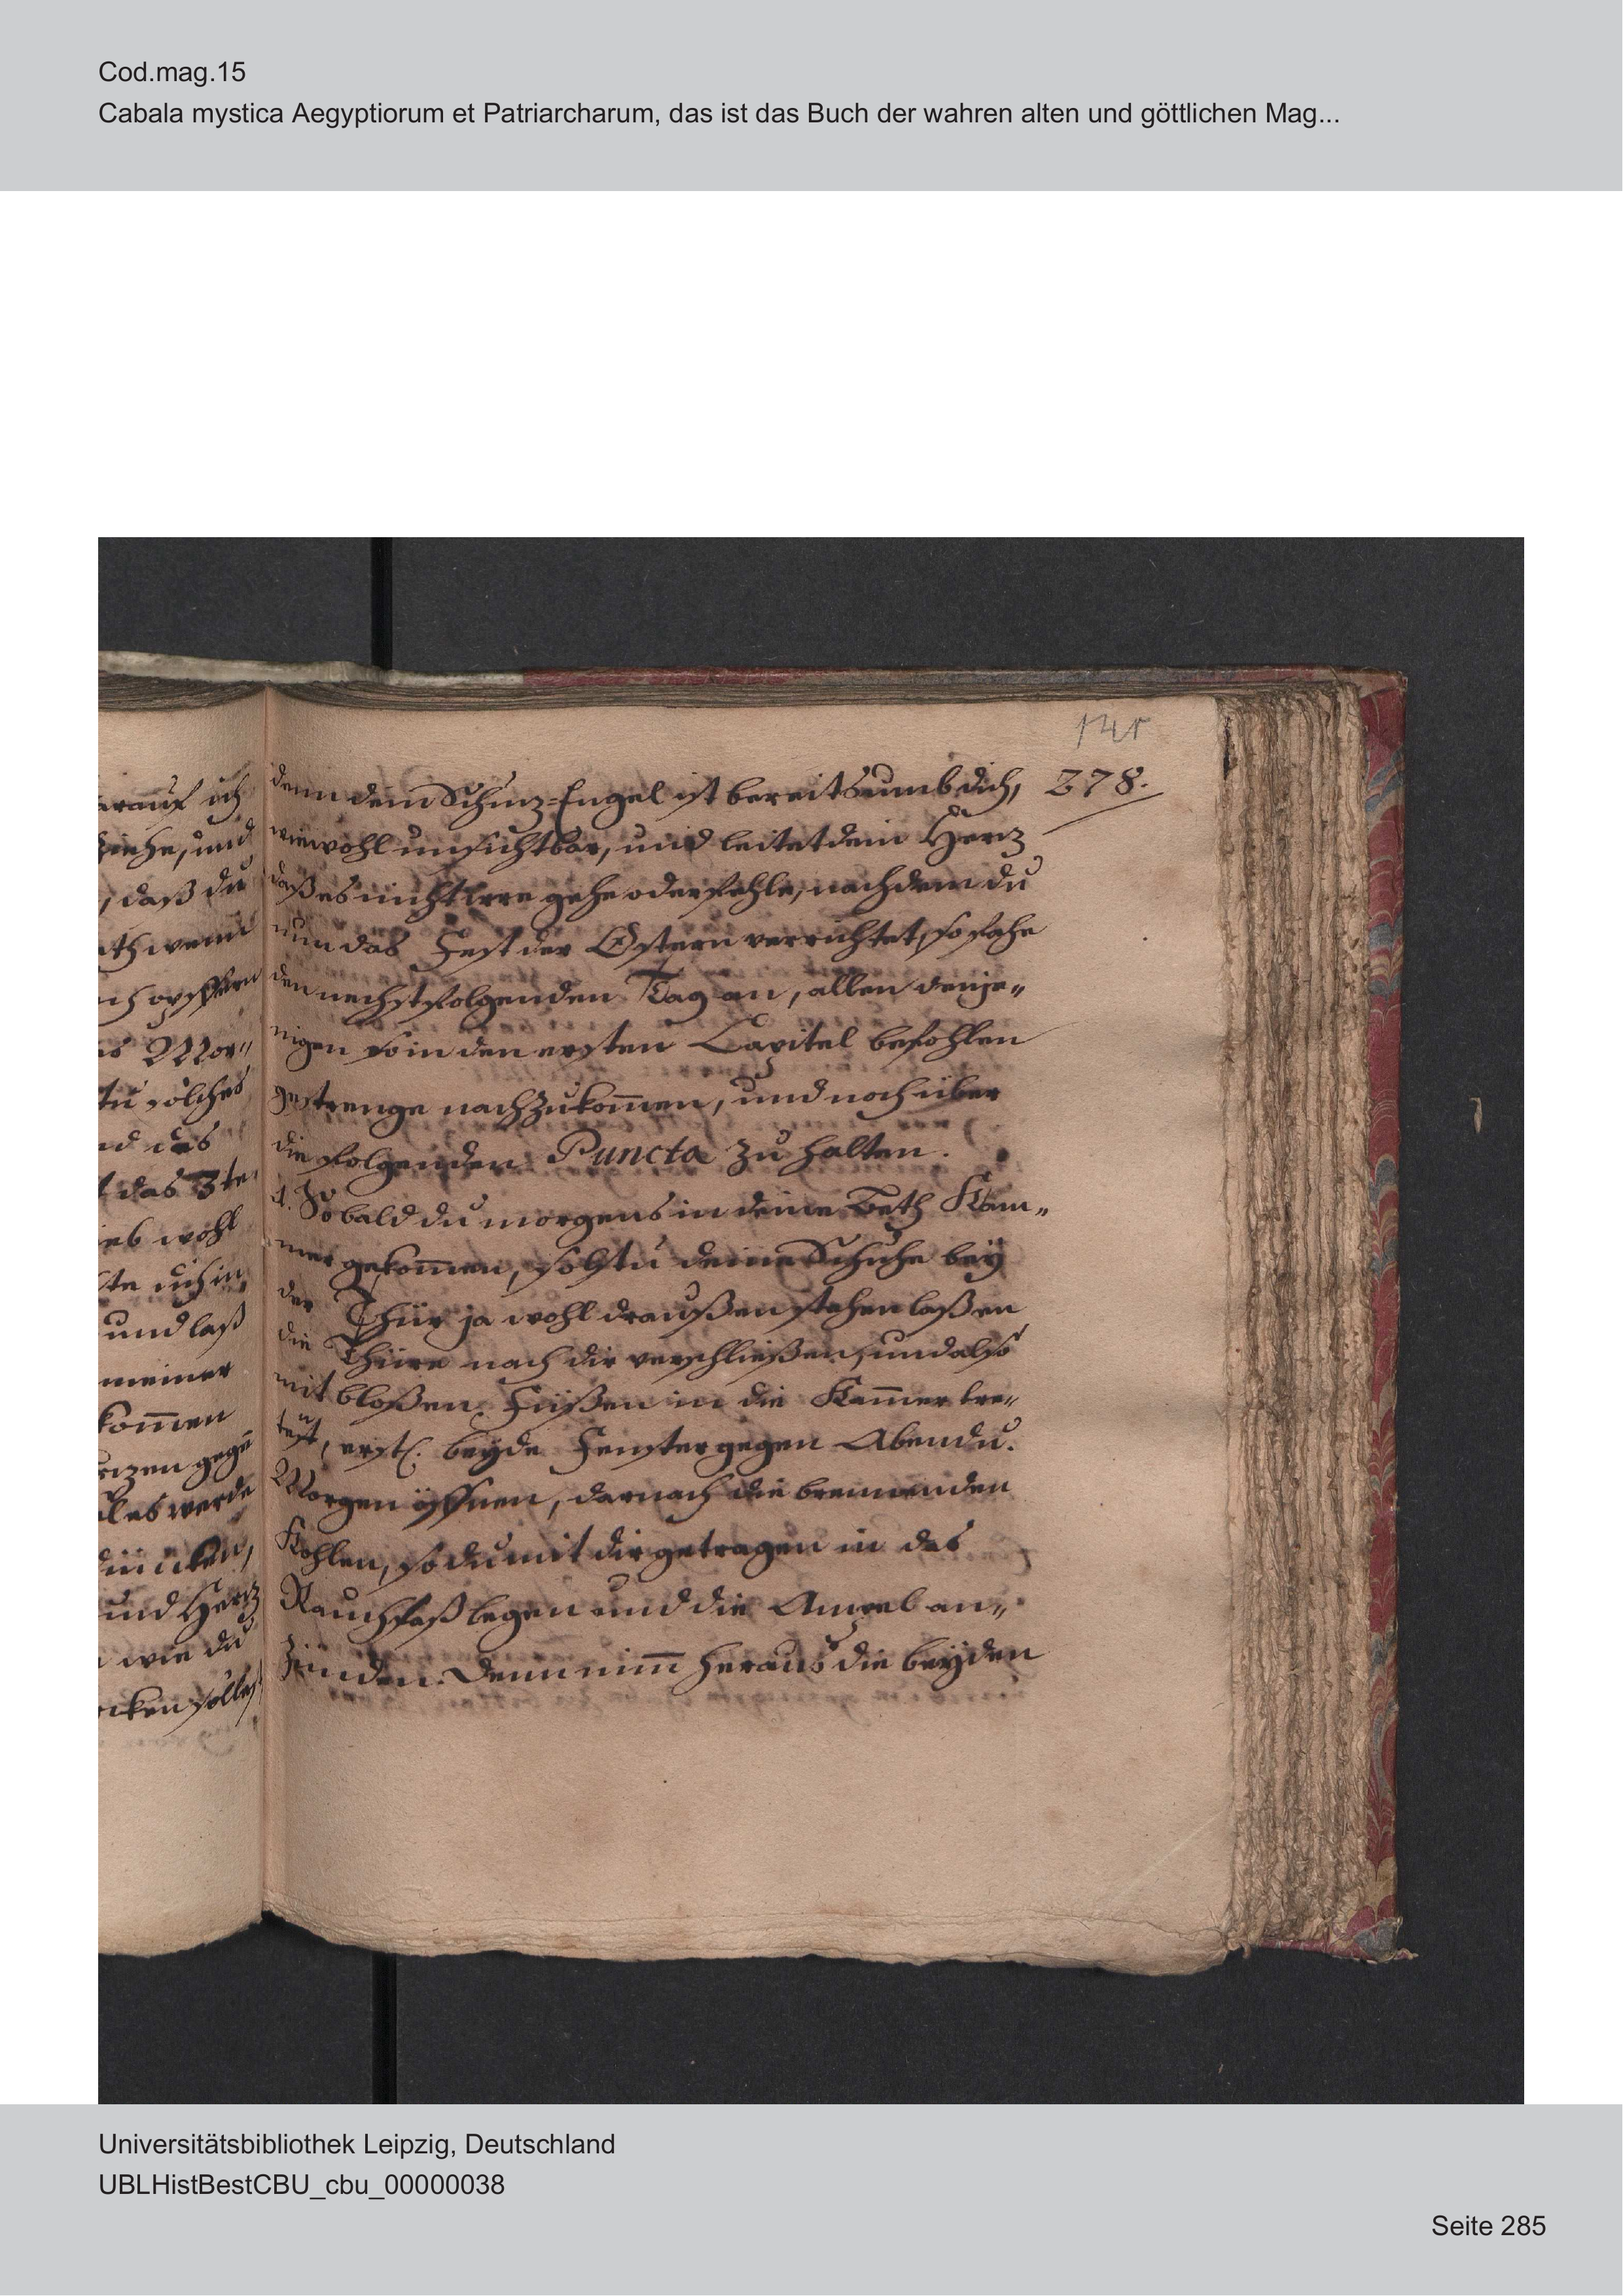 Cod.mag.15
Cabala mystica Aegyptiorum et Patriarcharum, das ist das Buch der wahren alten und göttlichen Mag...
141
278.
arauf ich
ziehe, und
, daß du
wenn
ich opffern
es Mor„
tu solches
nd das
das 3te
wohl
und laß
meiner
kom̄en
gegē
ales werde
und Hertz
wie du
denn dein Schuz-Engel ist bereits umb dich,
wiewohl unsichtbar, und leitet dein Hertz
daß es nicht irre gehe oder fehle, nachdem du
nun das Fest der Ostern verrichtet, so fahe
den nechstfolgenden Tag an, allen denje„
nigen so in den ersten Capitel befohlen
gestrenge nachzukom̄en, und noch über
die folgenden Puncta zu halten.
1. So bald du morgens in deine Beth Kam„
mer gekom̄en, solstu deine Schuhe bey
der Thür ja wohl draußen stehen laßen
die Thüre nach dir verschließen, und also
mit bloßen Füßen in die Kam̄er tre„
test, erstl. beyde Fenster gegen Abend u.
Morgen öffnen, darnach die brennenden
Kohlen, so du mit dir getragen in das
Rauchfaß legen und die Ampel an„
zünden. Denn nim̄ heraus die beyden
Universitätsbibliothek Leipzig, Deutschland
UBLHistBestCBU_cbu_00000038
Seite 285